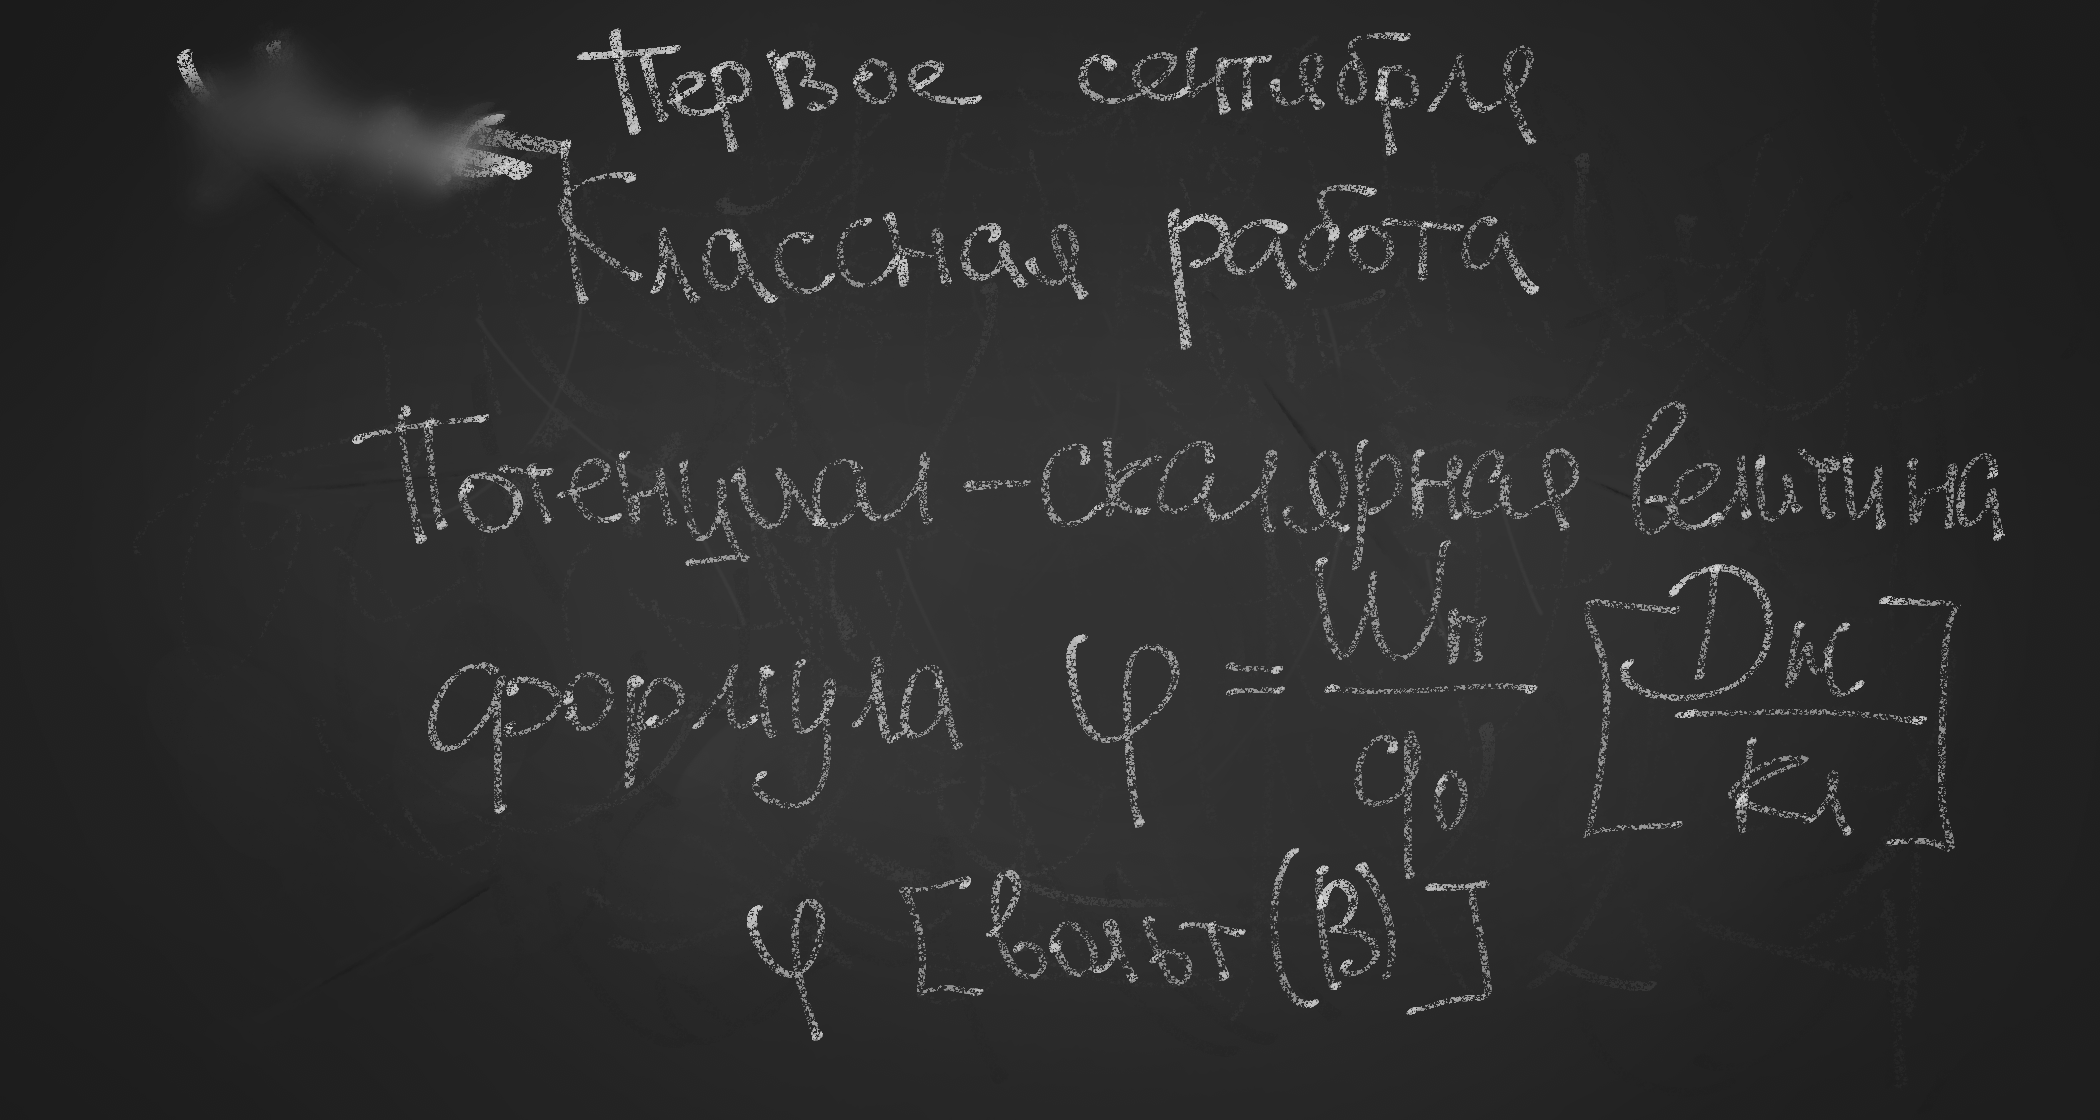 Первое сентября
Классная работа
Потенциал – скалярная величина
формула φ = Wп / q0 [Дж / Кл]
φ [вольт (В)]